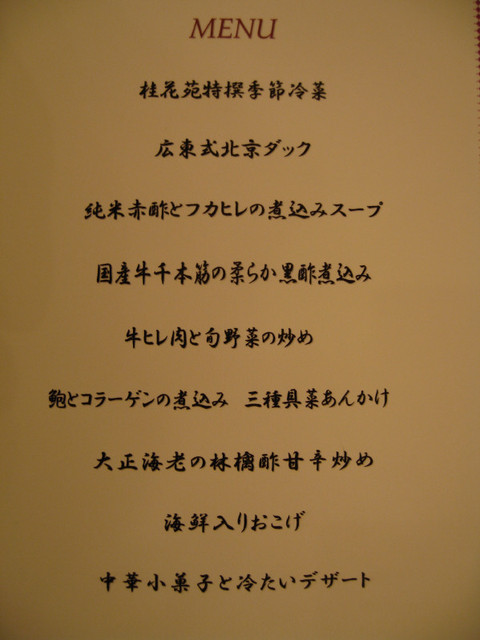 MENU
桂花苑特撰季節冷菜
広東式北京ダック
純米赤酢とフカヒレの煮込みスープ
国産牛千本筋の柔らか黒酢煮込み
牛ヒレ肉と旬野菜の炒め
鮑とコラーゲンの煮込み 三種具菜あんかけ
大正海老の林檎酢甘辛炒め
海鮮入りおこげ
中華小菓子と冷たいデザート